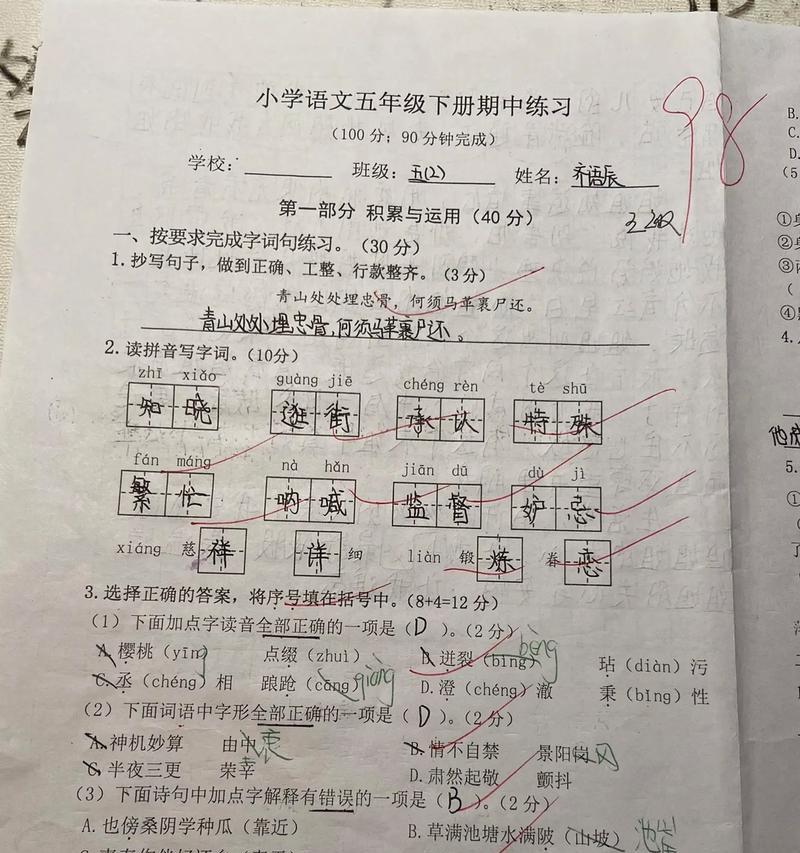 小学语文五年级下册期中练习
98
（100 分；90 分钟完成）
学校： 班级：五(2) 姓名：齐语辰
第一部分 积累与运用（40 分）
一、按要求完成字词句练习。（30 分）
1. 抄写句子，做到正确、工整、行款整齐。（3 分）
青山处处埋忠骨，何须马革裹尸还。
青山处处埋忠骨，何须马革裹尸还。
2. 读拼音写字词。（10分）
zhī xiǎo guàng jiē chéng rèn tè shū
知晓 逛街 承认 特殊
fán máng nà hǎn jiān dū dù jì
繁忙 呐喊 监督 妒忌
xiáng 慈祥 详细 liàn 锻炼 眷恋
3. 选择正确的答案，将序号填在括号中。（8+4=12 分）
（1）下面加点字读音全部正确的一项是（D）。（2 分）
A. 樱桃（yīng 点缀（zhuì） B. 迸裂（bìng）bèng 玷（diàn）污
C. 丞（chéng）相 踉跄（càng）qiàng D. 澄（chéng）澈 秉（bǐng）性
（2）下面词语中字形全部正确的一项是（D）。（2 分）
A. 神机妙算 由中衷 B. 情不自禁 景阳岗冈
C. 半夜三更 荣幸 D. 肃然起敬 颤抖
（3）下面诗句中加点字解释有错误的一项是（B）。（2 分）
A. 也傍桑阴学种瓜（靠近） B. 草满池塘水满陂（山坡）池岸
B.
C.
D.
（5
①
②
③
（
④
4.
5.
①